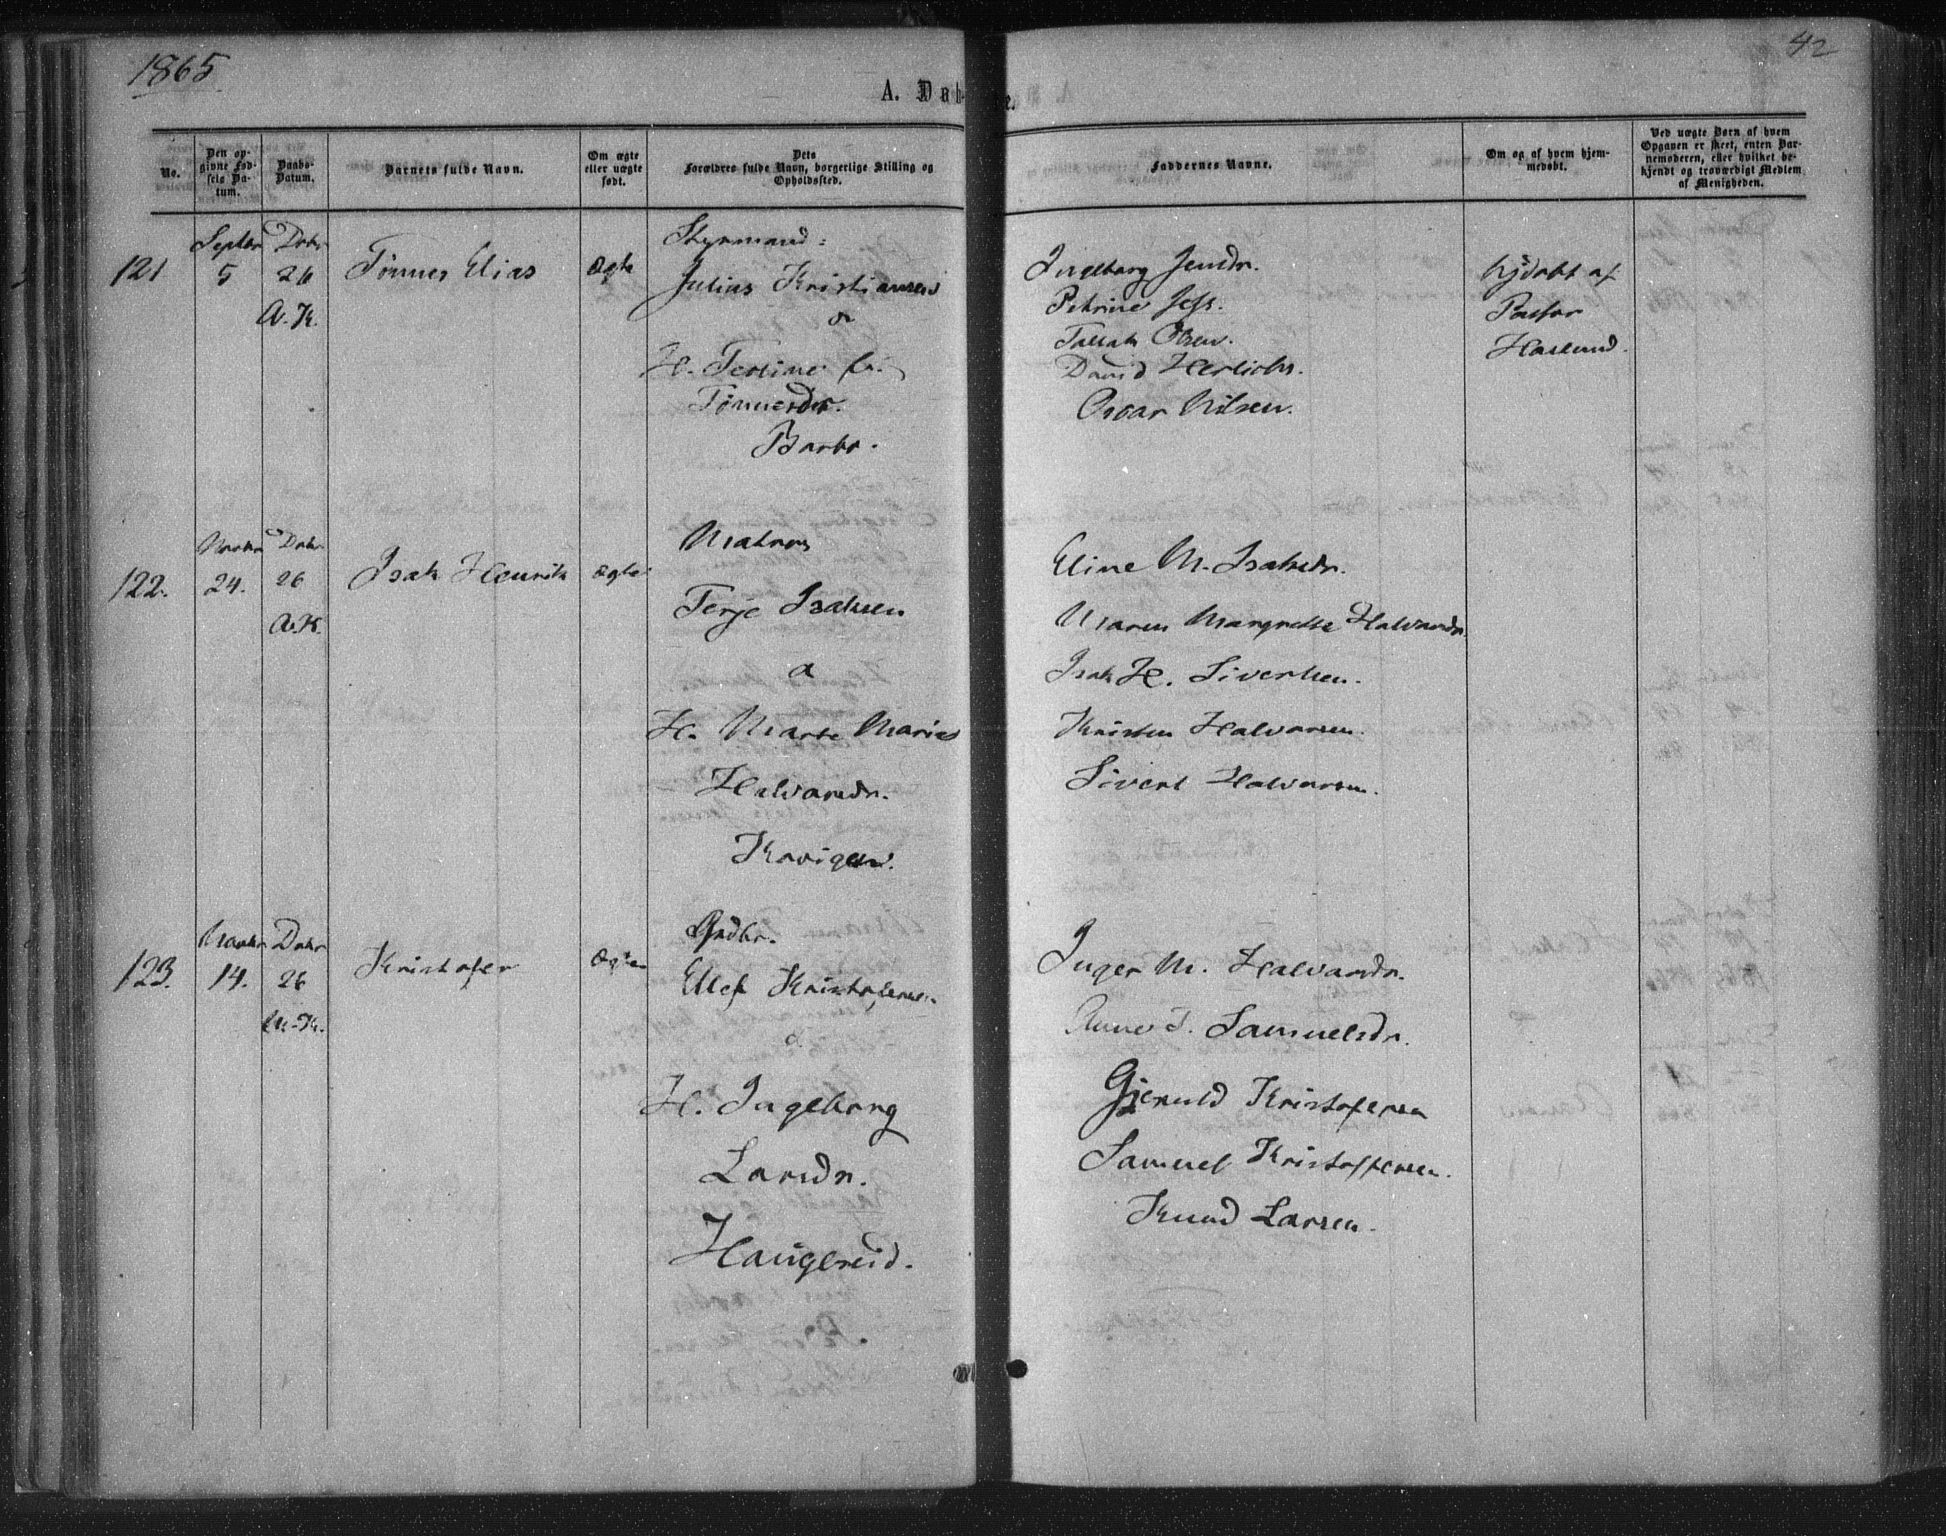 1865
42
A. Døb
e.
No.
Den op-
givne Fød-
sels Da-
tum.
Daabs-
Datum.
Barnets fulde Navn.
Om ægte
eller uægte
født.
Dets
Forældres fulde Navn, borgerlige Stilling og
Opholdssted.
Faddernes Navne.
Om og af hvem hjem-
medøbt.
Ved uægte Børn af hvem
Opgaven er skeet, enten Bar-
nemoderen, eller hvilket be-
kjendt og troværdigt Medlem
af Menigheden.
121
Septbr
5
Dcbr
26
A. K.
Tønnes Elias
Ægte
Styrmand:
Julius Kristiansen
og
H. Tesline
Tønnesdr.
Barbo.
Ingeborg Jensdr.
Petrine Jessdr.
Tallak Olsen.
David
Oscar Nilsen.
hjdøbt af
Pastor
Haslund.
122.
Novbr
24.
Dcbr
26
A. K.
Isak Henrik
ægte
Matros
Terje Isaksen
&
H. Marte Maria
Halvorsdr.
Kavigen.
Eline M. Isaksdr.
Maren Margrethe Halvorsdr.
Isak H. Sivertsen.
Kristen Halvorsen.
Sivert Halvorsen.
123.
Novbr
14.
Dcbr
26
A. K.
Kristofer
Ægte
Grdbr.
Ellef Kristofersen
&
H. Ingeborg
Larsdr.
Haugereid.
Inger M. Halvorsdr.
Anne T. Samuelsdr.
Gjeruld Kristofersen
Samuel Kristoffersen.
Knud Larsen.